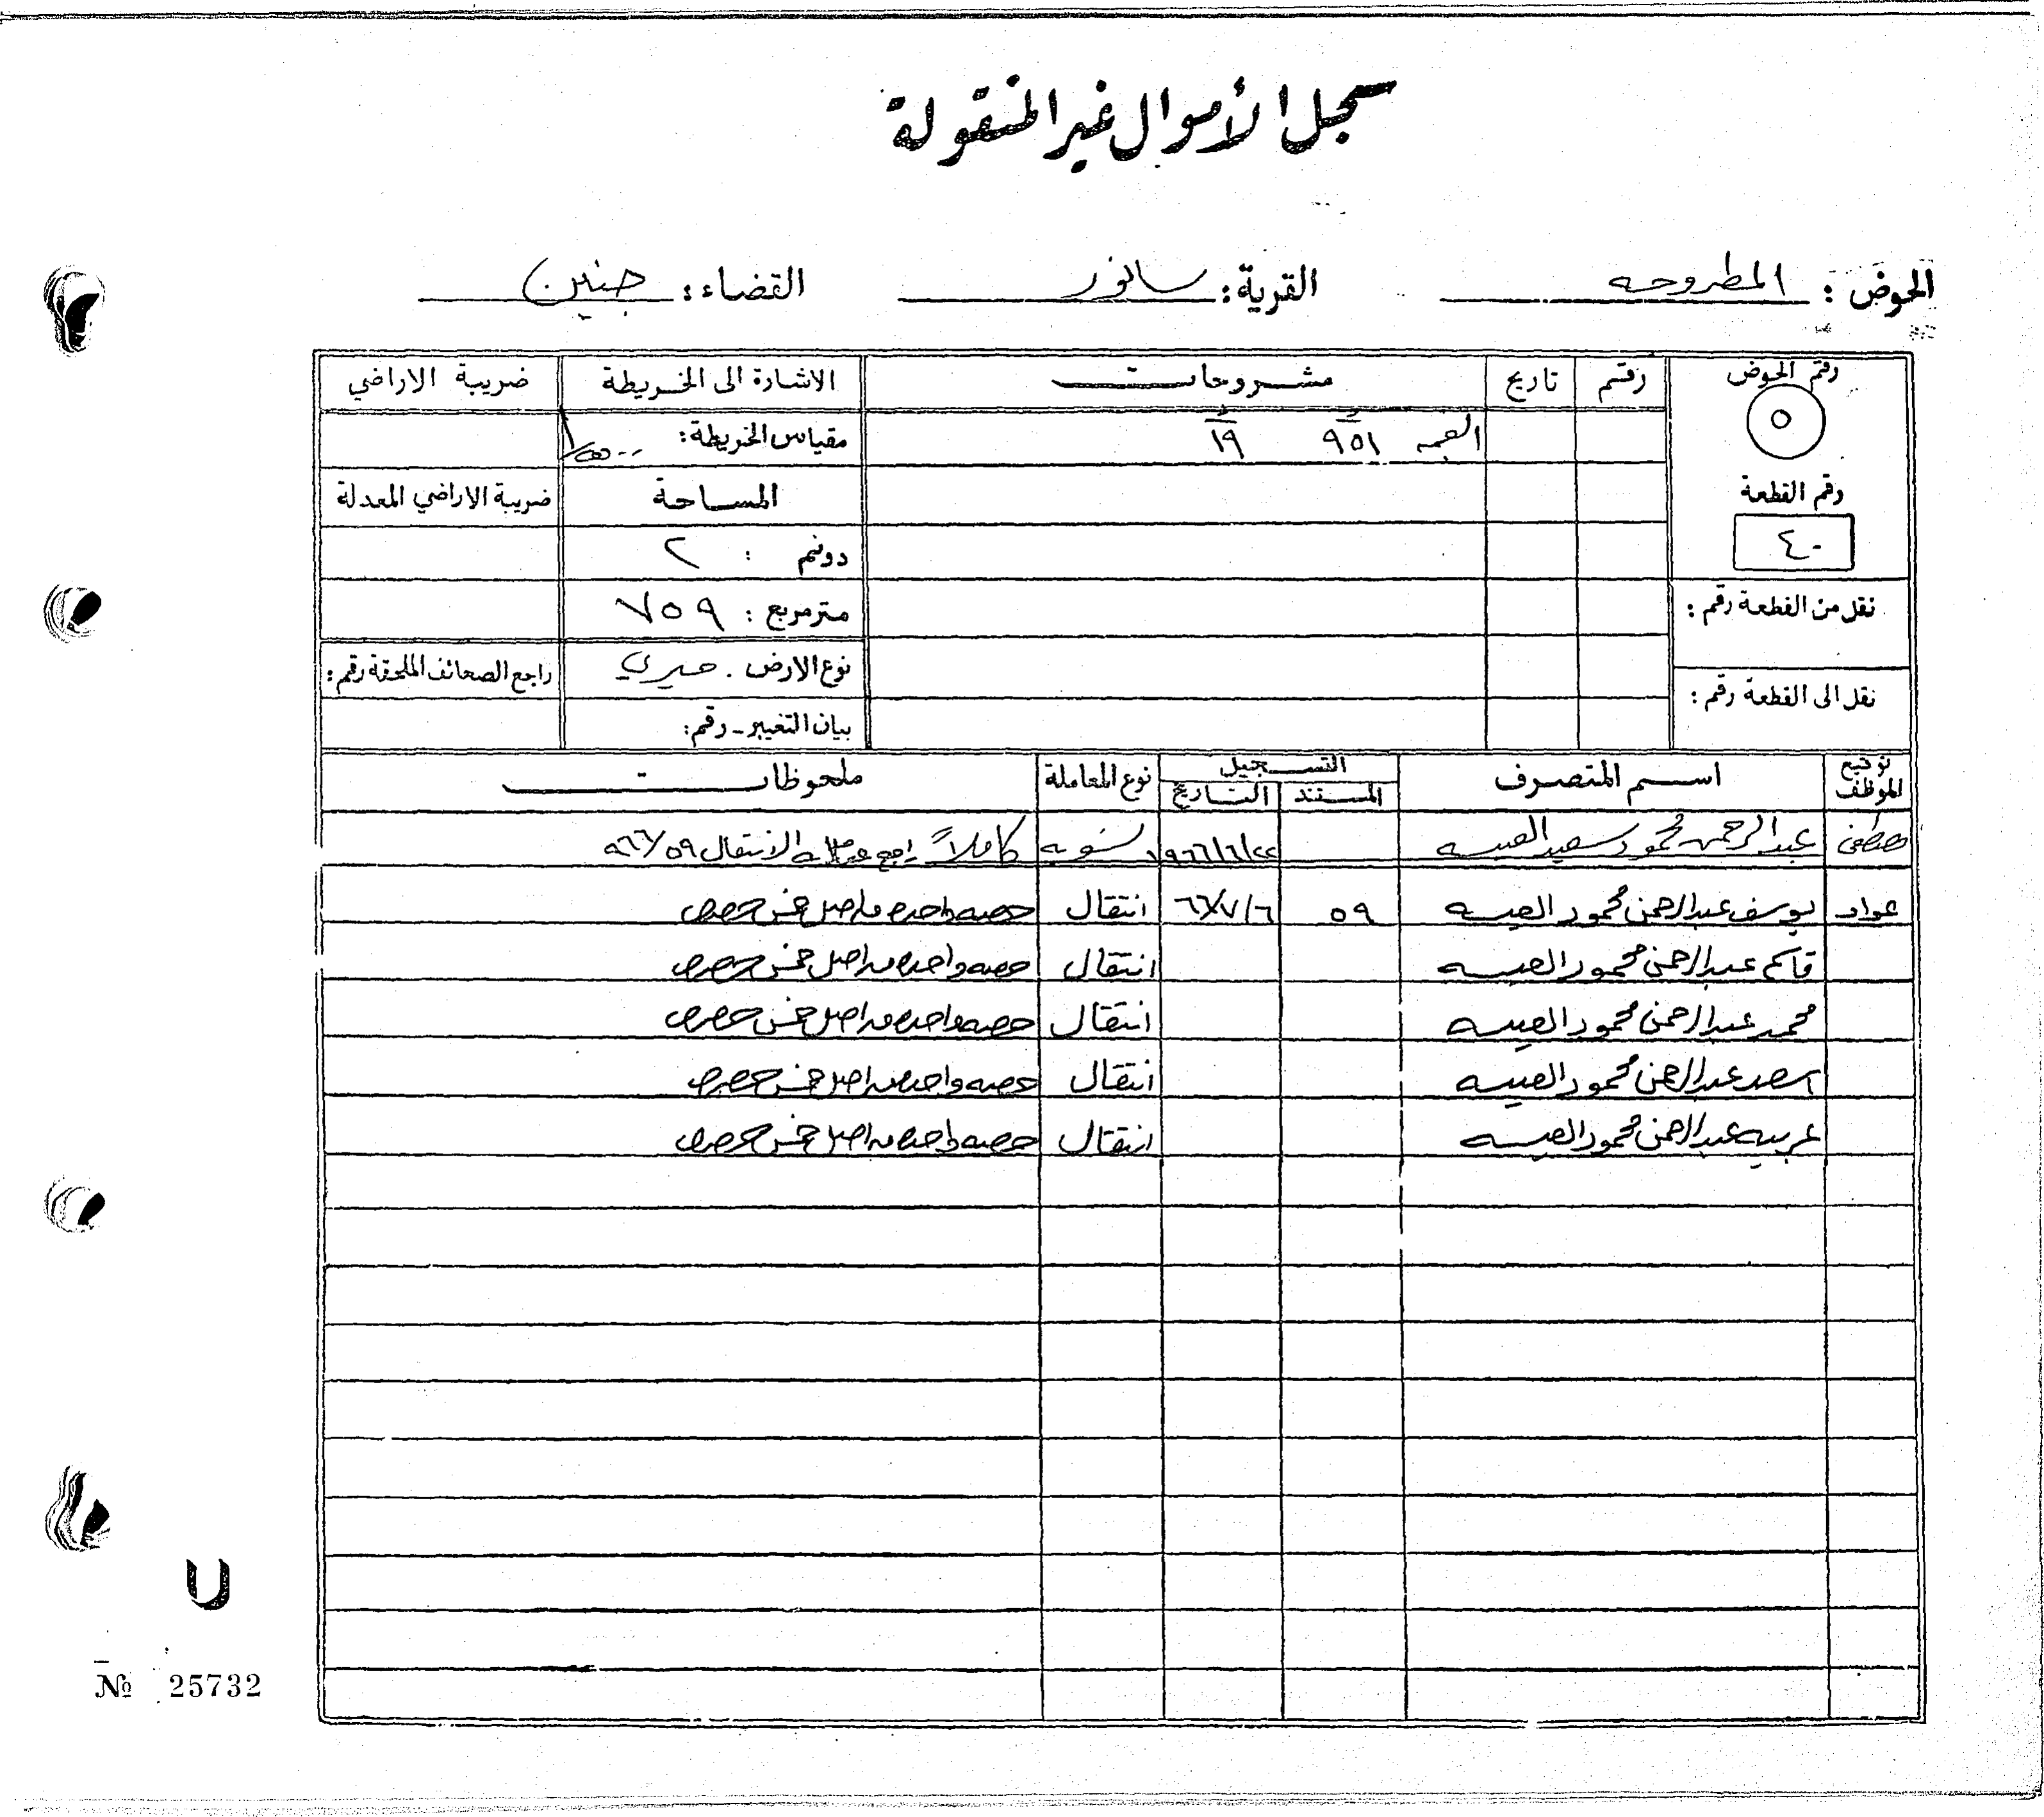 سجل الأموال غير المنقولة
الحوض : المطروحه القرية : سانور القضاء : جنين
رقم الحوض رقم تاريخ مشروحات الاشارة الى الخريطة ضريبة الاراضي
٥ ٩٥١ ١٩ مقياس الخريطة :
رقم القطعة المساحة ضريبة الاراضي المعدلة
٤٠ دونم : ٢
نقل من القطعة رقم : متر مربع : ٧٥٩
نوع الارض . ميري راجع الصحائف الملحقة رقم :
نقل الى القطعة رقم : بيان التغيير - رقم :
توقيع الموظف اسم المتصرف التسجيل نوع المعاملة ملحوظات
المستند التاريخ
مصطفى عبد الرحمن محمود سعيد العيسه ١٩٦٦/٦/٢٢ تسويه كاملاً راجع معاملة الانتقال ٩٦٦/٥٩
عواد يوسف عبد الرحمن محمود العيسه ٥٩ ٦٦/٧/٦ انتقال حصه واحده من اصل خمس حصص
قاسم عبد الرحمن محمود العيسه انتقال حصه واحده من اصل خمس حصص
محمد عبد الرحمن محمود العيسه انتقال حصه واحده من اصل خمس حصص
اسعد عبد الرحمن محمود العيسه انتقال حصه واحده من اصل خمس حصص
عربيه عبد الرحمن محمود العيسه انتقال حصه واحده من اصل خمس حصص
№ 25732